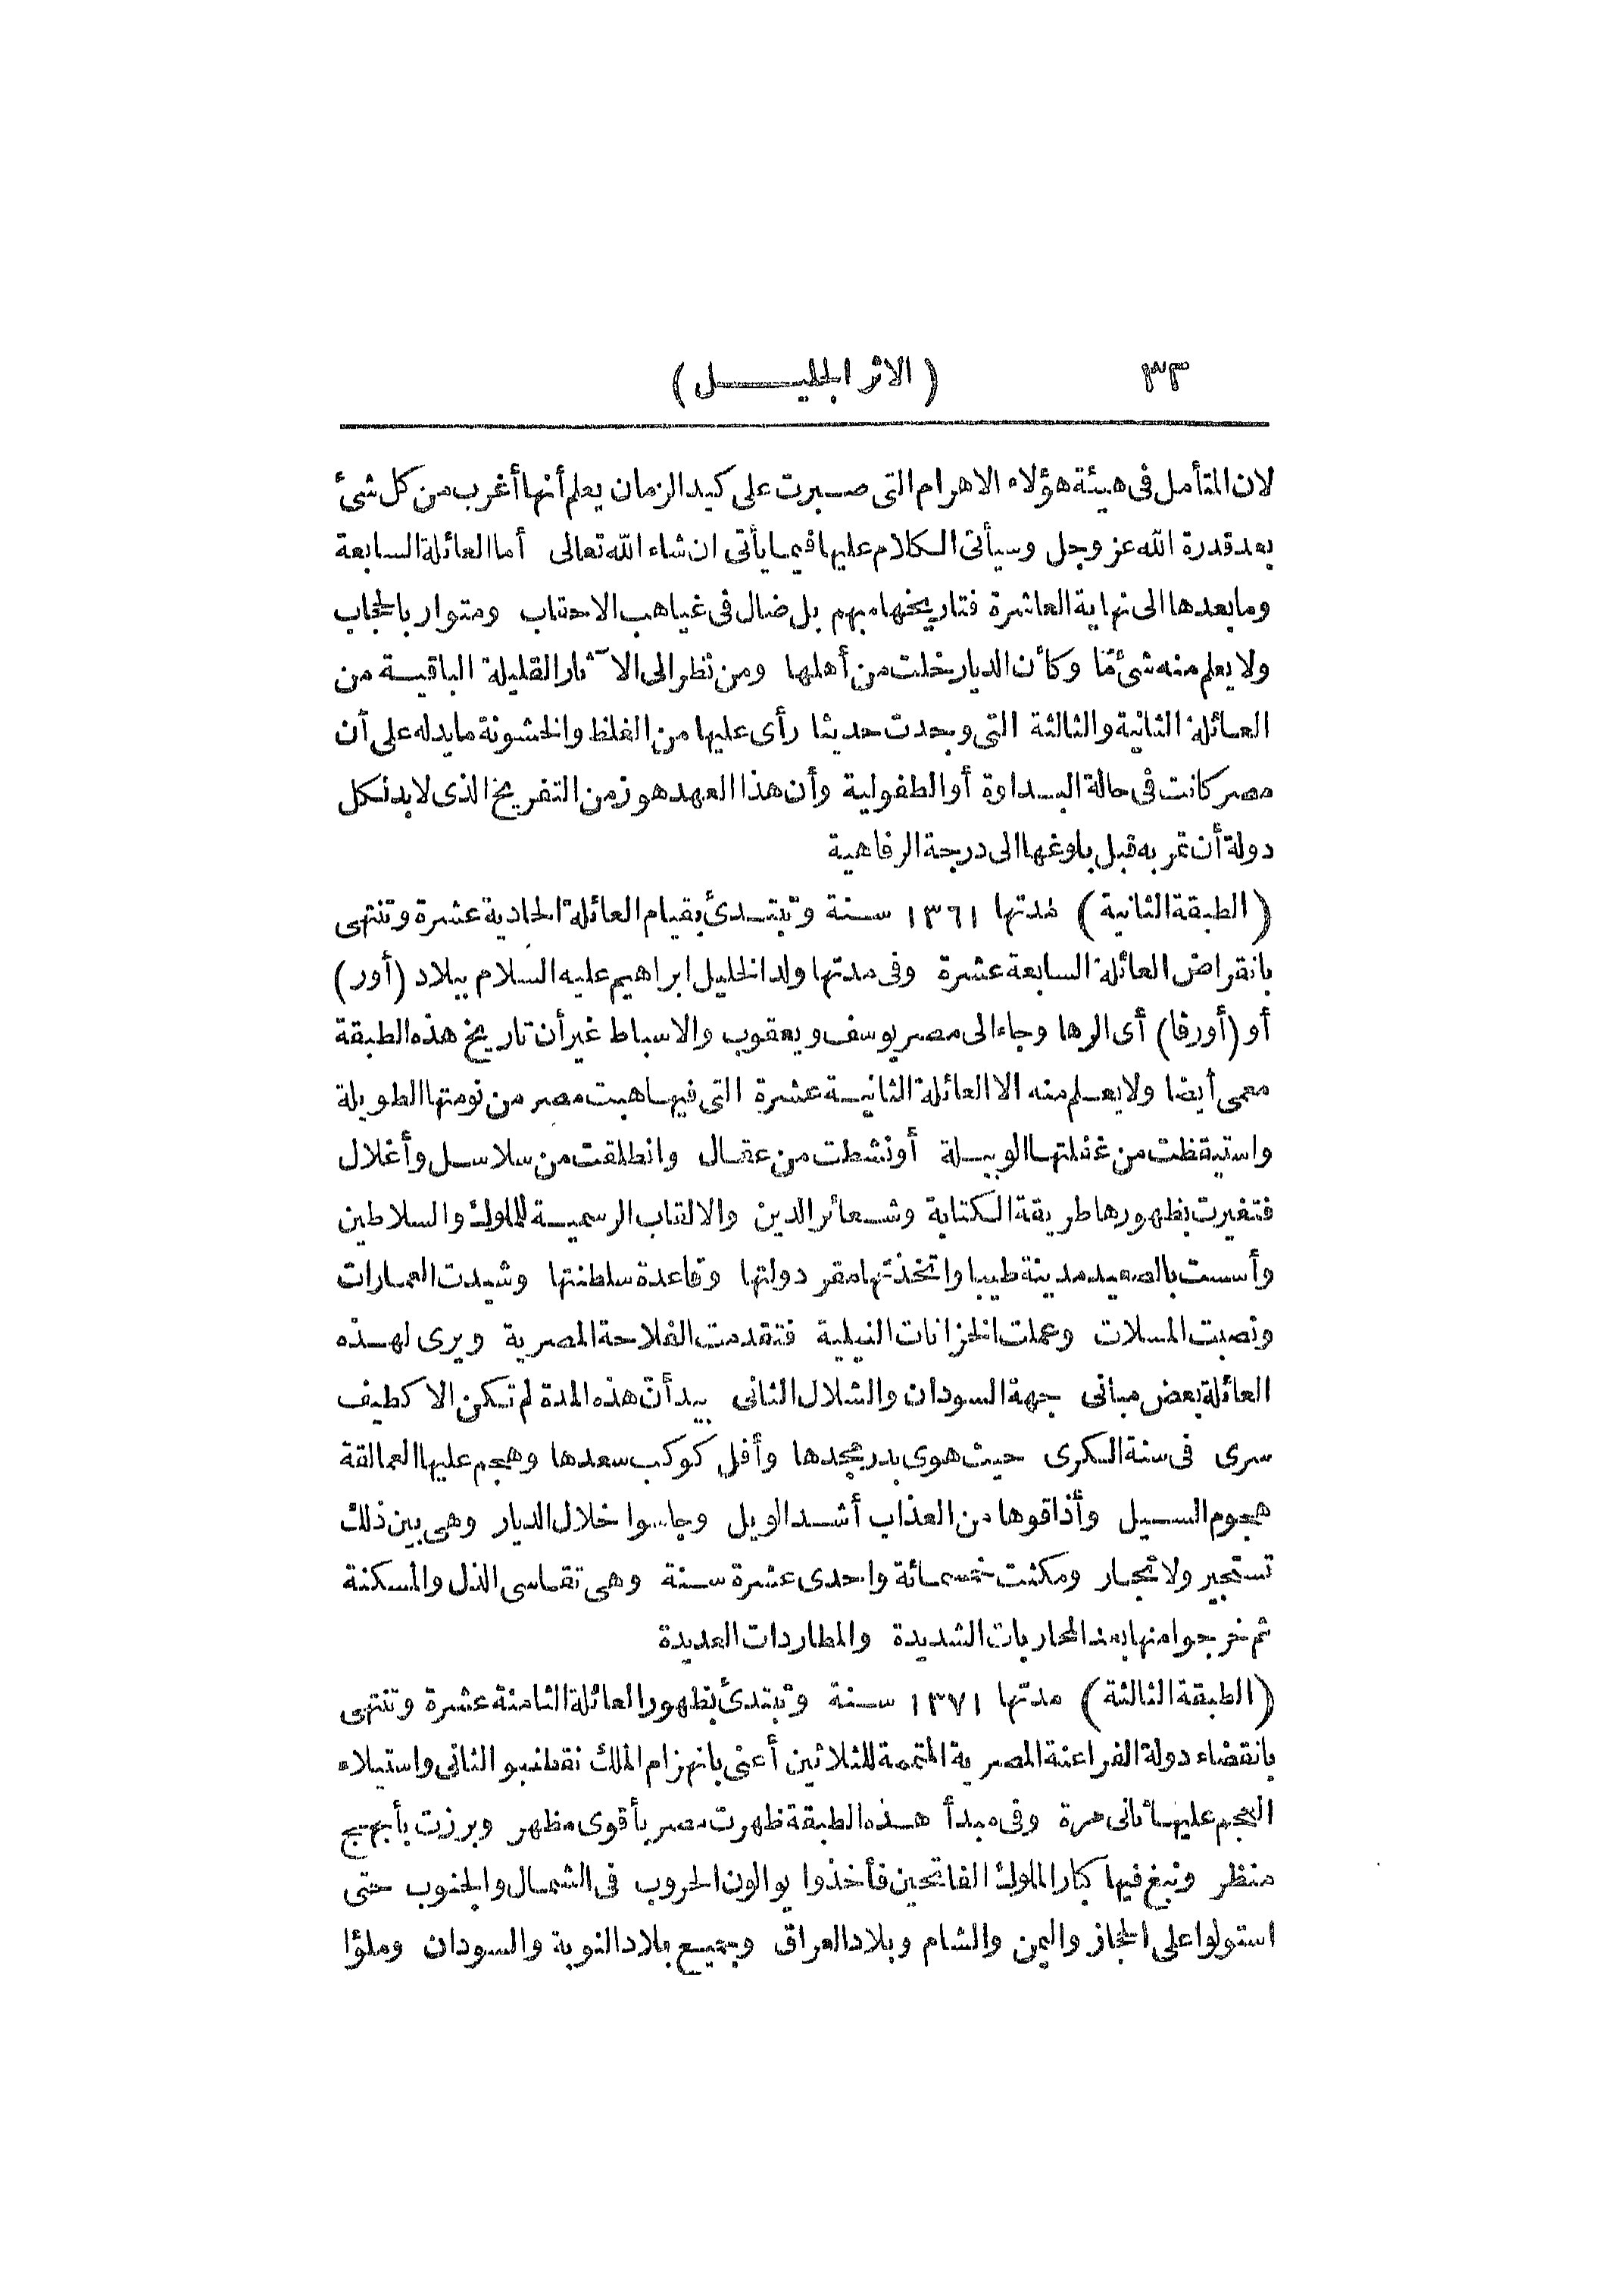 ٣٣ (الاثر الجليل)
لان المتأمل فى هيئة هؤلاء الاهرام التى صبرت على كيد الزمان يعلم أنها أغرب من كل شئ
بعد قدرة الله عز وجل وسيأتى الكلام عليها فيما يأتى ان شاء الله تعالى أما العائلة السابعة
وما بعدها الى نهاية العاشرة فتاريخها مبهم بل ضال فى غياهب الاحقاب ومتوار بالحجاب
ولا يعلم منه شئ مّا وكأن الديار خلت من أهلها ومن نظر الى الآثار القليلة الباقية من
العائلة الثانية والثالثة التى وجدت حديثا رأى عليها من الغلظ والخشونة ما يدله على أن
مصر كانت فى حالة البداوة أو الطفولية وأن هذا العهد هو زمن التفريخ الذى لا بد لكل
دولة أن تمر به قبل بلوغها الى درجة الرفاهية
(الطبقة الثانية) مدتها ١٣٦١ سنة وتبتدئ بقيام العائلة الحادية عشرة وتنتهى
بانقراض العائلة السابعة عشرة وفى مدتها ولد الخليل ابراهيم عليه السلام ببلاد (أور)
أو (أورفا) أى الرها وجاء الى مصر يوسف ويعقوب والاسباط غير أن تاريخ هذه الطبقة
معمى أيضا ولا يعلم منه الا العائلة الثانية عشرة التى فيها هبت مصر من نومتها الطويلة
واستيقظت من غفلتها الوبيلة أو نشطت من عقال وانطلقت من سلاسل وأغلال
فتغيرت بظهورها طريقة الكتابة وشعائر الدين والالقاب الرسمية للملوك والسلاطين
وأسست بالصعيد مدينة طيبا واتخذتها مقر دولتها وقاعدة سلطنتها وشيدت العمارات
ونصبت المسلات وعملت الخزانات النيلية فتقدمت الفلاحة المصرية ويرى لهذه
العائلة بعض مبانى بجهة السودان والشلال الثانى بيد أن هذه المدة لم تكن الا كطيف
سرى فى سنة الكرى حيث هوى بدر مجدها وأفل كوكب سعدها وهجم عليها العمالقة
هجوم السيل وأذاقوها من العذاب أشد الويل وجاسوا خلال الديار وهى بين ذلك
تستجير ولا تجار ومكثت خمسمائة واحدى عشرة سنة وهى تقاسى الذل والمسكنة
ثم خرجوا منها بعد المحاربات الشديدة والمطاردات العديدة
(الطبقة الثالثة) مدتها ١٣٧١ سنة وتبتدئ بظهور العائلة الثامنة عشرة وتنتهى
بانقضاء دولة الفراعنة المصرية المتممة للثلاثين أعنى بانهزام الملك نقطنبو الثانى واستيلاء
العجم عليها ثانى مرة وفى مبدأ هذه الطبقة ظهرت مصر بأقوى مظهر وبرزت بأبهج
منظر ونبغ فيها كبار الملوك الفاتحين فأخذوا يوالون الحروب فى الشمال والجنوب حتى
استولوا على الحجاز واليمن والشام وبلاد العراق وجميع بلاد النوبة والسودان وملؤا